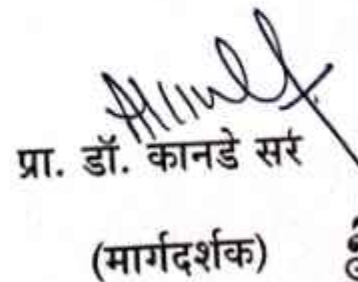 प्रा. डॉ. कानडे सर
(मार्गदर्शक)